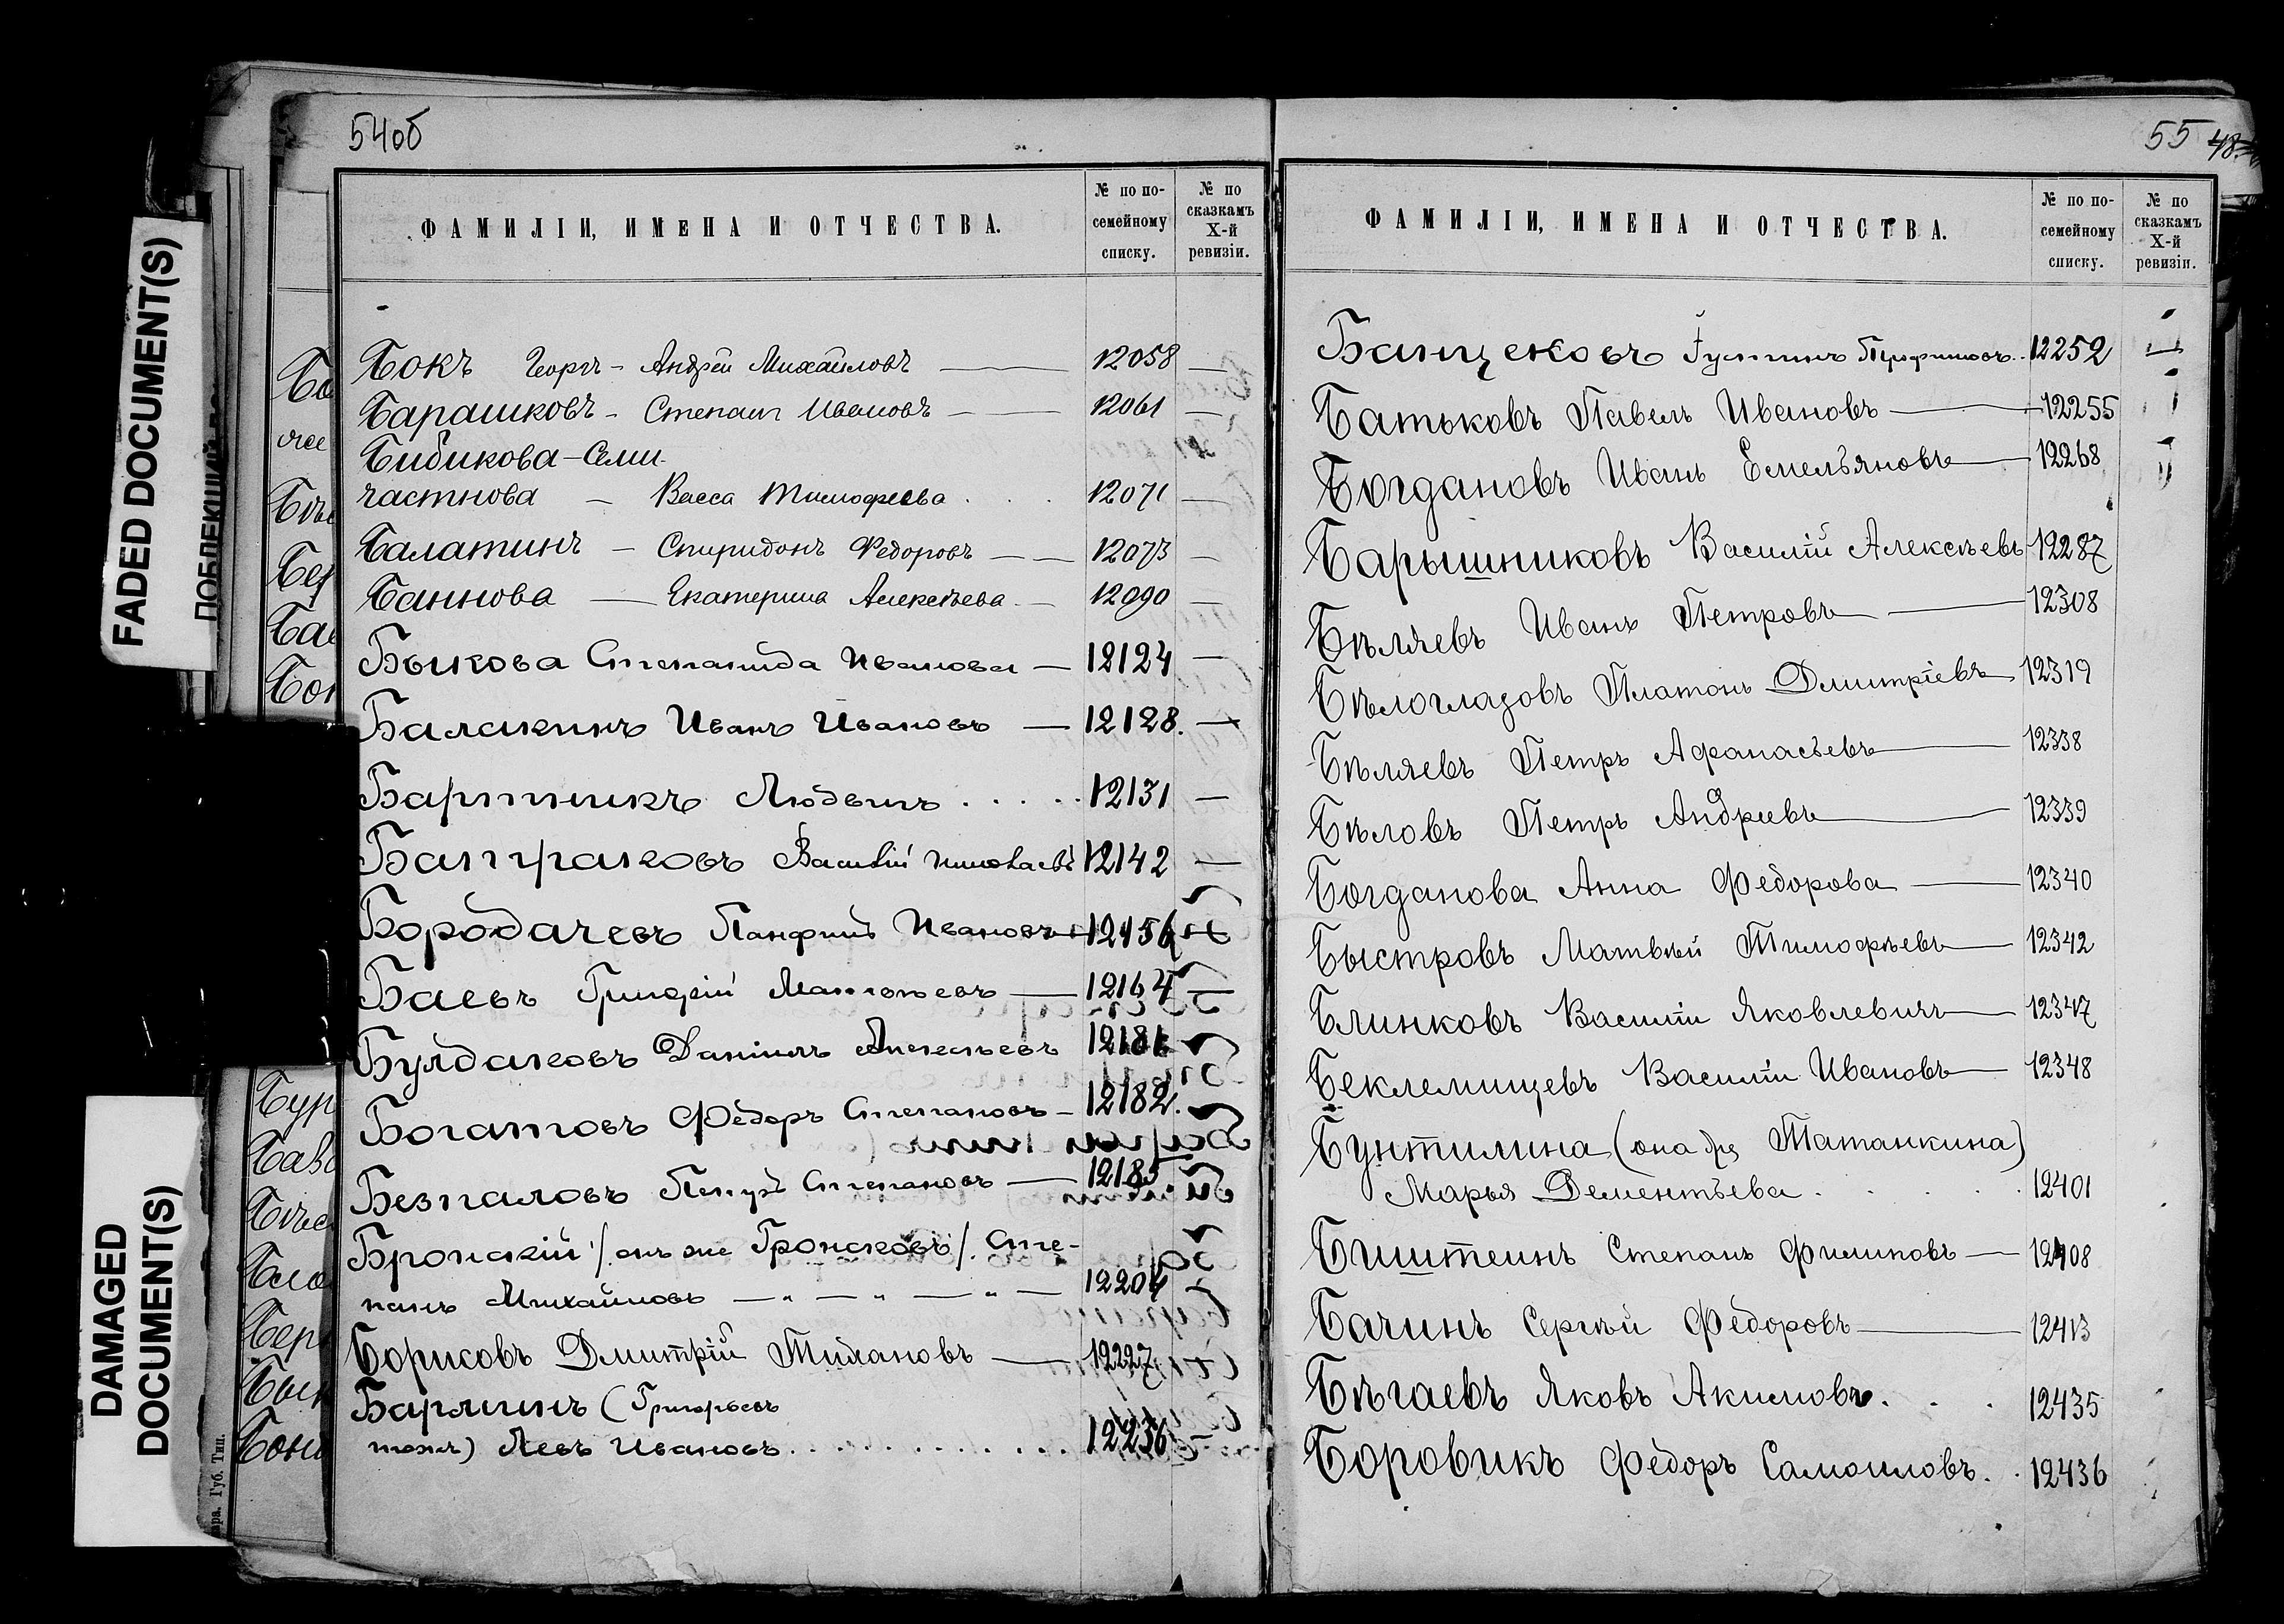 FADED DOCUMENT(S)
DAMAGED
DOCUMENT(S)
54об
ФАМИЛІИ, ИМЕНА И ОТЧЕСТВА.
№ по по-
семейному
списку.
№ по
сказкамъ
X-й
ревизіи.
Бокъ Георгъ - Андрей Михайловъ — 12058 —
Барашковъ - Степанъ Ивановъ — 12061 —
Бибикова - Семи
частнова — Васса Тимофеева . . . 12071 —
Балатинъ — Спиридонъ Федоровъ — — 12073 —
Баннова — Екатерина Алексѣева — 12090 —
Быкова Степанида Иванова — 12124 —
Балакинъ Иванъ Ивановъ — 12128. —
Бартникъ Людвигъ . . . . . 12131 —
Батраковъ Василій Николаевъ 12142 —
Бородачевъ Панфилъ Ивановъ — 12156 —
Баевъ Григорій Матвѣевъ — 12164 —
Булдаковъ Даніилъ Алексѣевъ 12181
Богатовъ Федоръ Степановъ — 12182.
Безпаловъ Петръ Степановъ — 12185
Бронскій /онъ же Гронсковъ/. Сте-
панъ Михайловъ — „ — „ — „ — 12204 —
Борисовъ Дмитрій Тихановъ — 12227
Бармин​ъ (Григорьевъ
тожъ) Левъ Ивановъ . . . . . . . . . . . 12236 —
55 48
ФАМИЛІИ, ИМЕНА И ОТЧЕСТВА.
№ по по-
семейному
списку.
№ по
сказкамъ
X-й
ревизіи.
Банщековъ 12252 —
Батьковъ Павелъ Ивановъ — 12255
Богдановъ Иванъ Емельяновъ — 12268
Барышниковъ Василій Алексѣевъ 12287
Бѣляевъ Иванъ Петровъ — 12308
Бѣлоглазовъ Платонъ Дмитріевъ 12319
Бѣляевъ Петръ Афанасьевъ — 12338
Бѣловъ Петръ Андреевъ — 12339
Богданова Анна Федорова — 12340
Быстровъ Матвѣй Тимофѣевъ — 12342
Блинковъ Василіи Яковлевичъ — 12347
Беклемищевъ Василіи Ивановъ — 12348
Бунтилина (она же Татанкина)
Марья Дементьева . . . . . 12401
Биштеинъ Степанъ Филиповъ — 12408
Бачинъ Сергѣй Федоровъ — 12413
Бѣгаевъ Яковъ Акимовъ . . . 12435
Боровикъ Федоръ Самоиловъ . . 12436